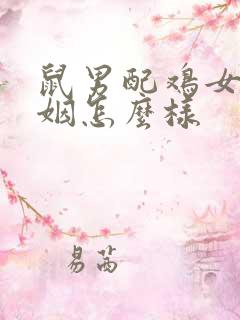 鼠男配鸡女
姻怎麼樣
易茜